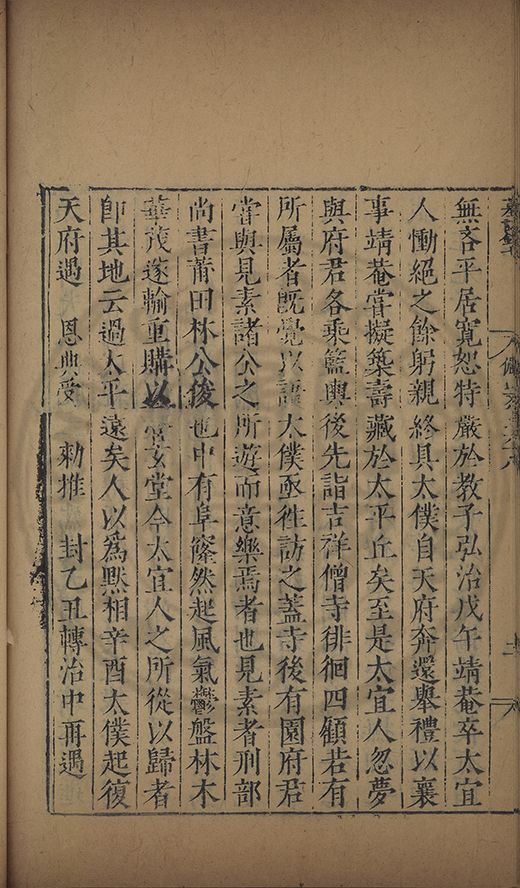 無吝平居寬恕特嚴於教子弘治戊午靖菴卒太宜
人慟絕之餘躬親終具太僕自天府奔還舉禮以襄
事靖菴嘗擬築壽藏於太平丘矣至是太宜人忽夢
與府君各乘籃輿後先詣吉祥僧寺徘徊四顧若有
所屬者既覺以語太僕亟徃訪之蓋寺後有園府君
嘗與見素諸公之所遊而意樂焉者也見素者刑部
尚書莆田林公俊也中有阜窿然起風氣鬱盤林木
華茂遂輸重購以營玄堂今太宜人之所從以歸者
卽其地云過太平遠矣人以爲默相辛酉太僕起復
天府遇 恩典受 勑推 封乙丑轉治中再遇